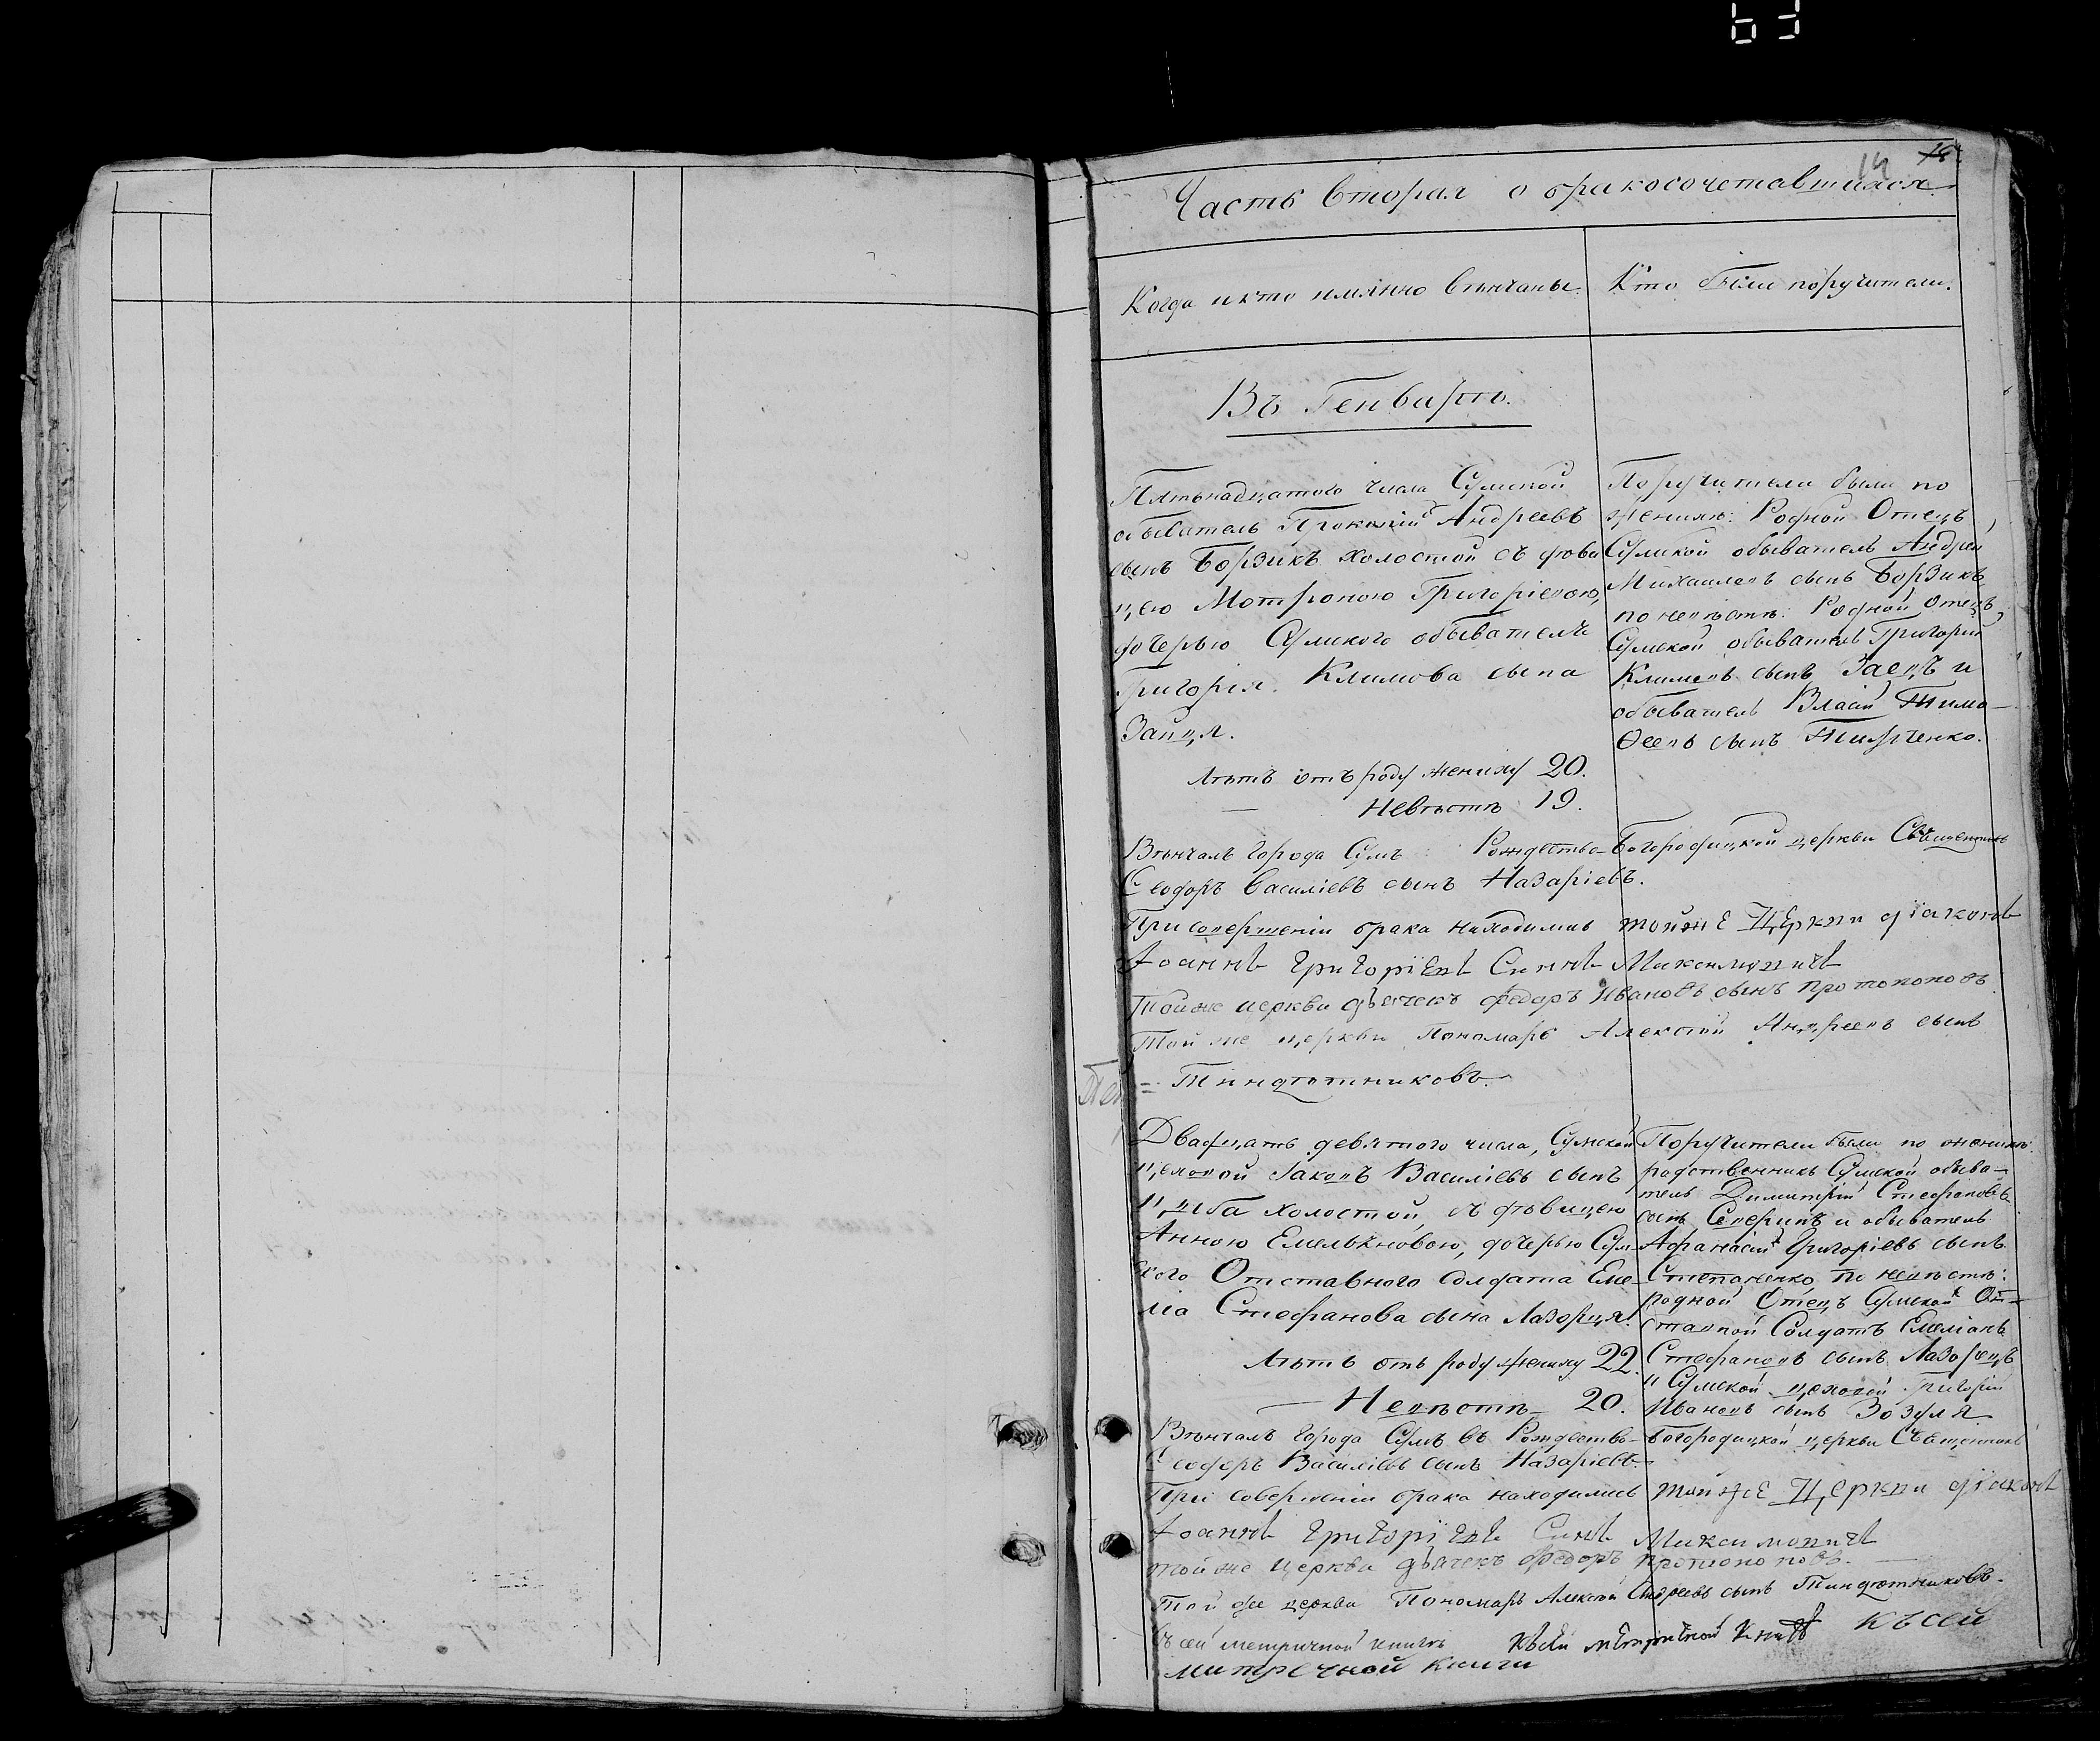 63
14
Часть вторая о бракосочетавшихся
Когда и кто имянно венчаны.
Кто были поручители.
Въ Генварѣ.
Пятьнадцатого числа Сумской
обыватель Прокопій Андреевъ
сынъ Борзикъ холостой съ дѣви
цею Мотроною Григоріевою,
дочерью Сумского обывателя
Григорія Климова сына
Зайця.
Лѣтъ отъ роду жениху 20.
— Невѣстѣ 19.
Поручители были по
женихѣ: Родной Отецъ,
Сумской обыватель Андрей
Михаиловъ сынъ Борзикъ
по невѣстѣ: Родной отецъ,
Сумской обыватель Григорій
Климовъ сынъ Заецъ и
обыватель Власій Тимо-
ѳеевъ сынъ
Вѣнчалъ города Сумъ Рождество-Богородицкой церкви Священникъ
Ѳеодоръ Василіевъ сынъ Назаріевъ.
При совершеніи брака находились тойже Церкви діаконъ
Іоаннъ Григоріевъ Синъ Максимовичъ
тойже церкви дьячекъ Федоръ Ивановъ сынъ Протопоповъ
Той же церкви Пономарь Алексѣй Андреевъ сынъ
= Тиндютниковъ.
Двадцать девятого числа, Сумской
цеховой Іаковъ Василіевъ сынъ
холостой, съ дѣвицею
Анною Емельяновою, дочерью Сум-
ского Отставного Солдата Еме-
ліа Стефанова сына Лазорця.
Лѣтъ отъ роду жениху 22.
— Невѣстѣ — 20.
Поручители были по женихѣ:
родственникъ Сумской обыва-
тель Димитрій Стефановъ
сынъ Северинъ и обыватель
Афанасій Григоріевъ сынъ
Степаненко, по невѣстѣ:
родной Отецъ Сумской От-
ставной Солдатъ Емеліанъ
Стефановъ сынъ Лазорецъ
и Сумской цеховой Григорій
Ивановъ сынъ Зозуля
Вѣнчалъ города Сумъ въ Рождество-Богородицкой церкви Священникъ
Ѳеодоръ Василіевъ сынъ Назаріевъ.
При совершеніи брака находились тойже Церкви діаконъ
Іоаннъ Григоріевъ Синъ Максимовичъ
тойже церкви дьячекъ Федоръ Протопоповъ.
Той же церкви Пономарь Алексѣй Андреевъ сынъ Тиндютниковъ.
Къ сей метричной книгѣ Къ сей метричной книгѣ Къ сей
митречной книги